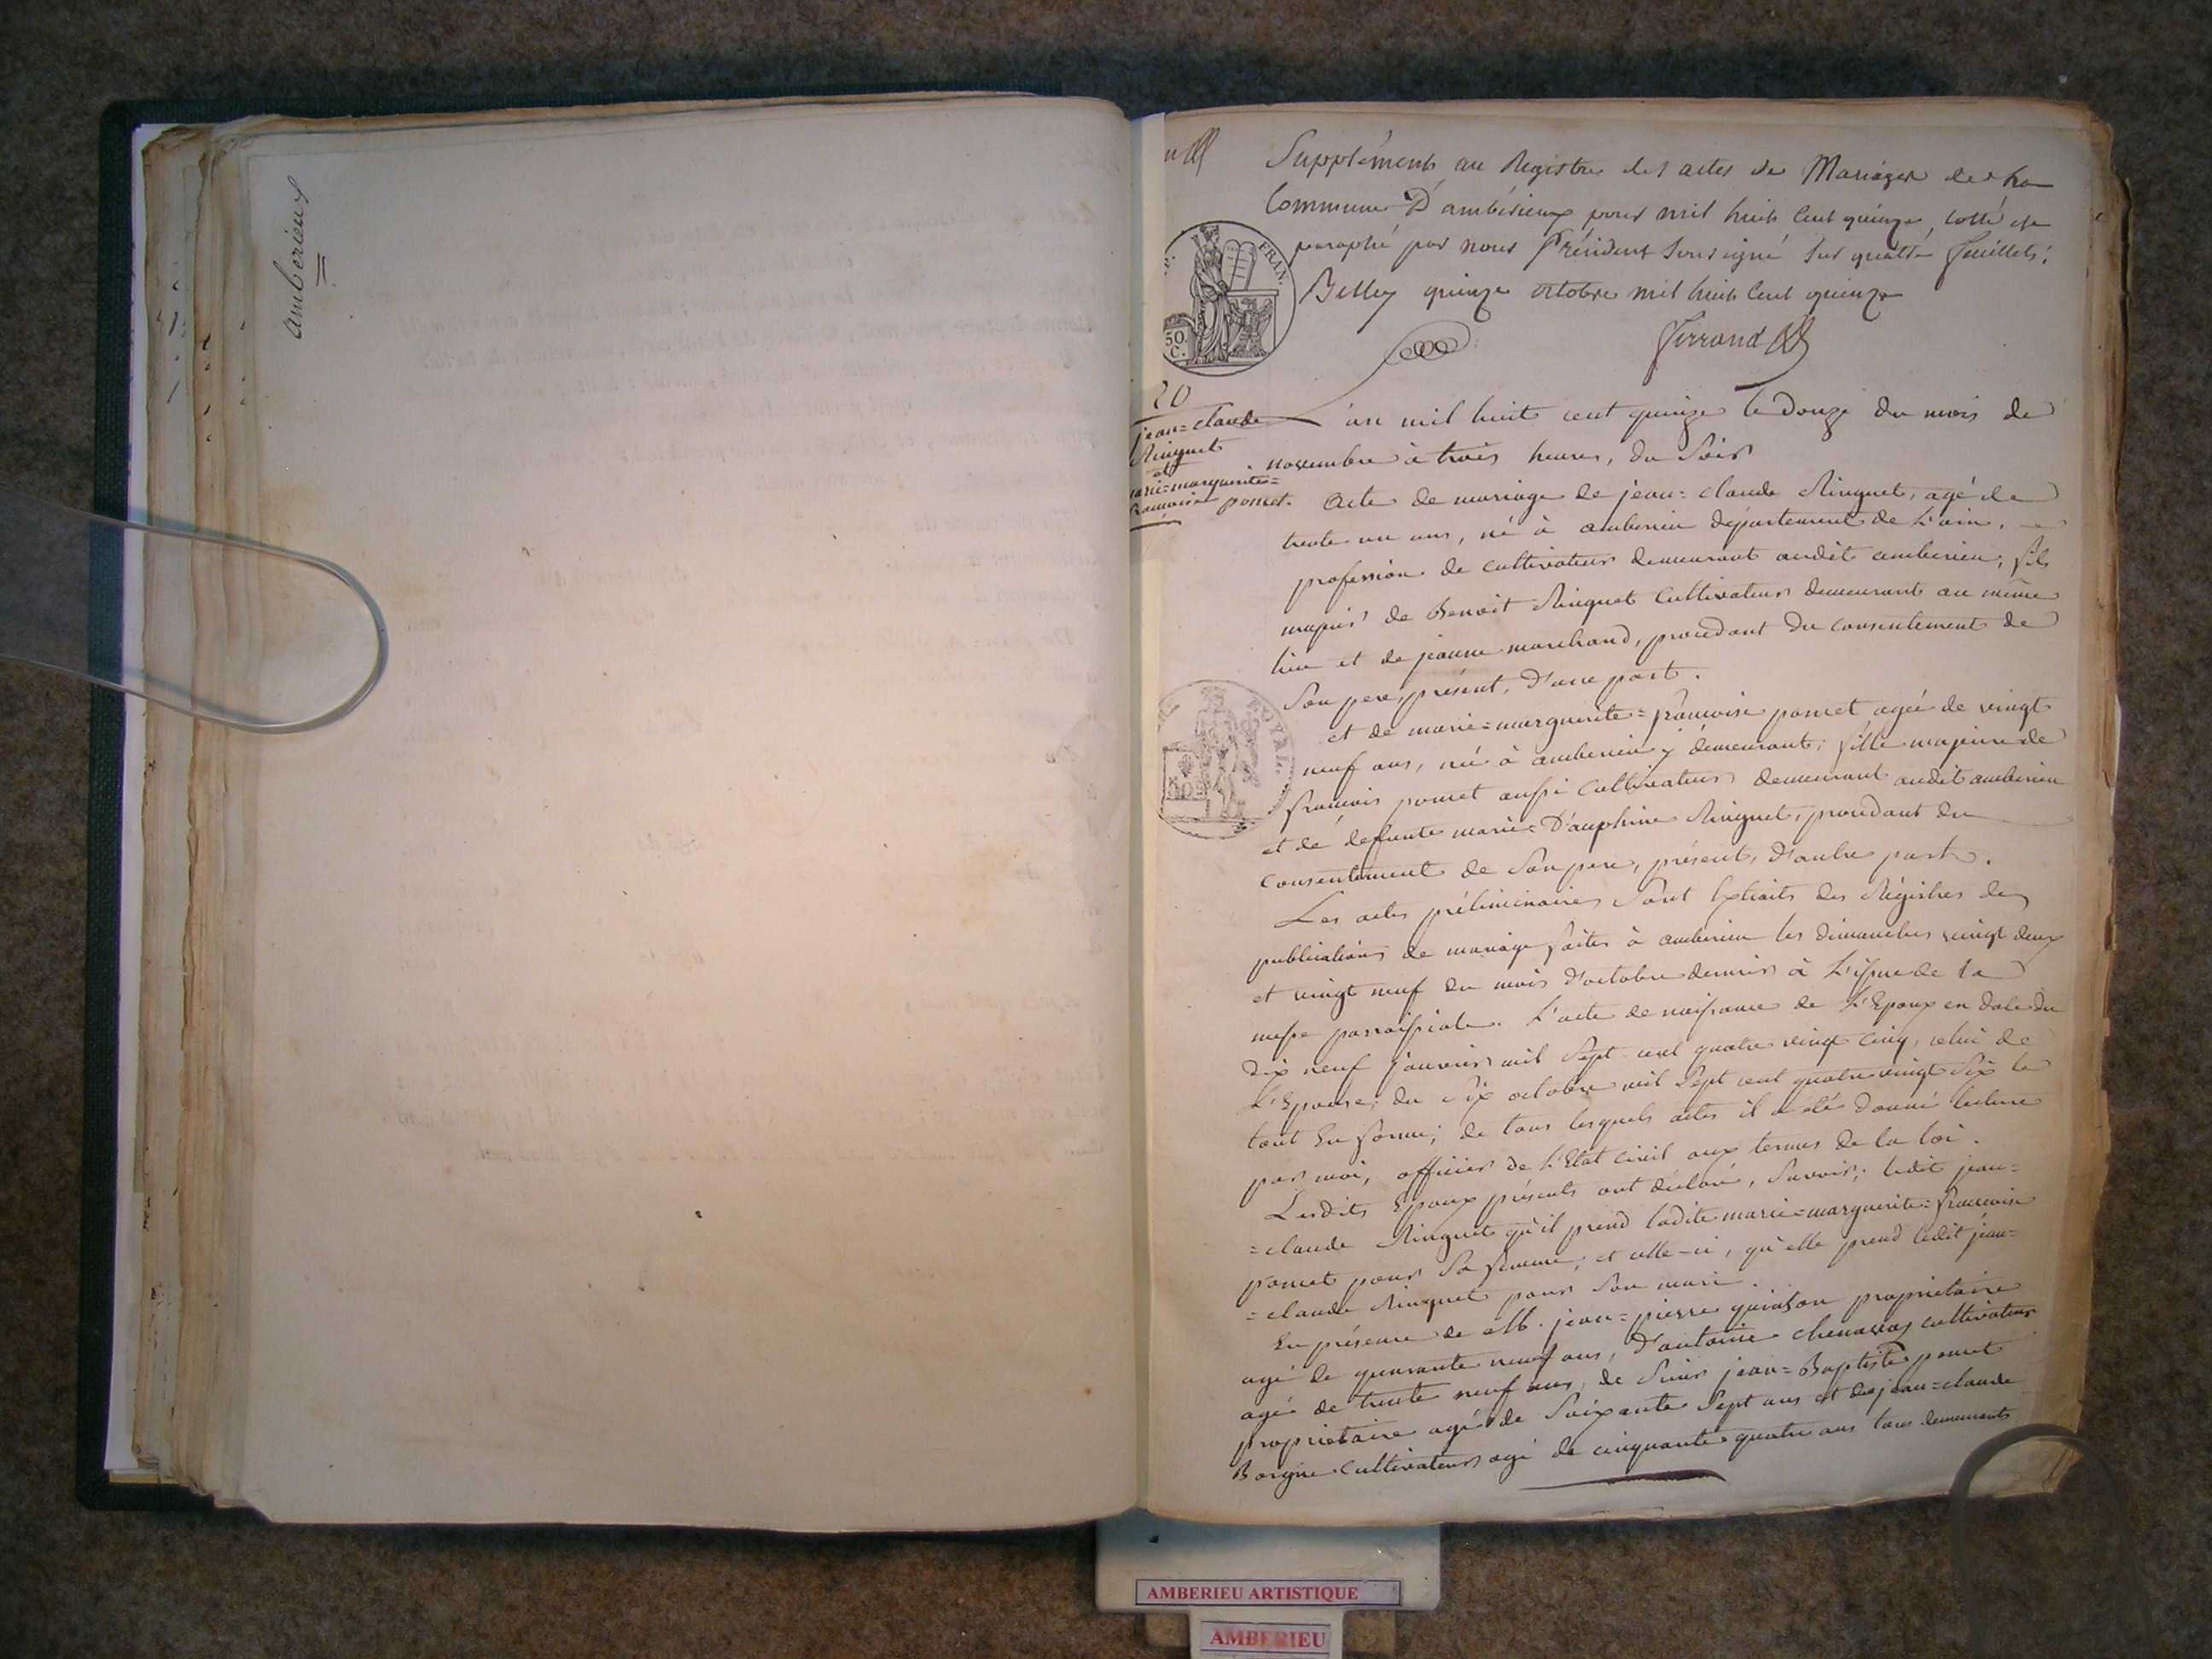 amberieux
Supplément au Registre des actes de Mariages de la
Commune D'ambérieux pour mil huit Cent quinze, cotté et
paraphé par nous Président Soussigné Sur quatre feuillets.
Belley quinze octobre mil huit Cent quinze
Ferrand
FRAN.
50.
C.
20
jean=claude
Ringuet
et
marie=marguerite=
francoise poncet.
L'an mil huit cent quinze le douze du mois de
novembre à trois heures, du Soir
Acte de mariage de jean=claude Ringuet, agé de
trente un ans, né à amberieu département de L'ain,
profession de cultivateur demeurant audit amberieu, fils
majeur de Benoit Ringuet Cultivateur demeurant au même
lieu et de jeanne marchand, procédant du consentement de
Son pere, présent, d'une part.
et de marie=marguerite=francoise poncet agée de vingt
neuf ans, née à amberieu y demeurant, fille majeure de
francois poncet aussi Cultivateur demeurant audit amberieu
et de defunte marie=Dauphine Ringuet, procédant du
ROYAL.
Consentement de Son pere, présent, d'autre part.
Les actes préliminaires Sont Extraits des Régistres des
publications de mariage faites à amberieu les dimanches vingt deux
et vingt neuf du mois d'octobre dernier à L'issue de la
messe parroissiale. L'acte de naissance de L'Epoux en date du
dix neuf janvier mil Sept cent quatre vingt cinq, celui de
L'Epouse, du Six octobre mil Sept cent quatre vingt Six le
tout En forme; de tous lesquels actes il a été donné lecture
par moi, officier de L'Etat civil aux termes de la loi.
Lesdits Epoux présents ont déclaré, Savoir; ledit jean=
=claude Ringuet qu'il prend ladite marie=marguerite=francoise
poncet pour Sa femme; et celle-ci, qu'elle prend ledit jean=
=claude Ringuet pour Son mari.
En présence de M. jean=pierre quinson propriétaire
agé de quarante neuf ans, d'antoine chenavas cultivateur
agé de trente neuf ans, de Sieur jean=Baptiste poncet
propriétaire agé de Soixante Sept ans et de jean=claude
Borgne Cultivateur agé de cinquante quatre ans tous demeurants
AMBERIEU ARTISTIQUE
AMBERIEU